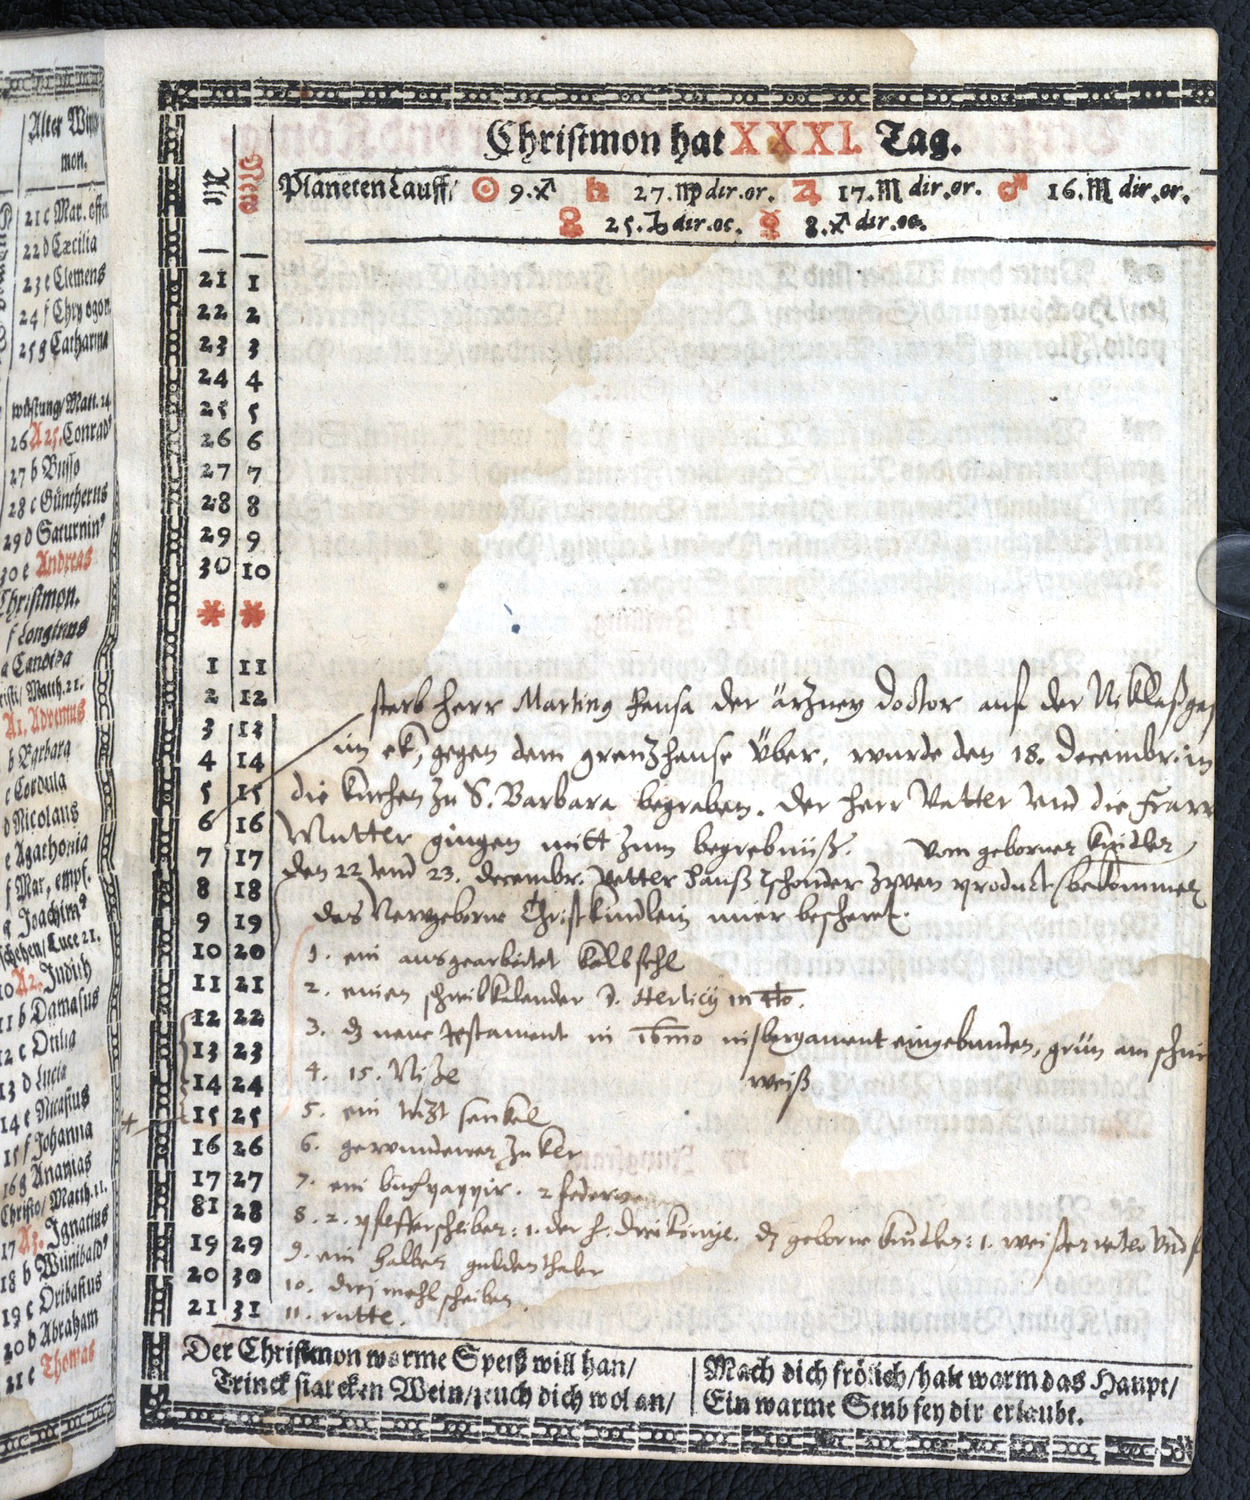 Alter Win
mon.
21 c Mar. offe
22 d Cæcilia
23 e Clemens
24 f Chrysogon
25 g Catharina
wüstung/Matt. 24
26 A 25. Conrad
27 b Busso
28 c Güntherus
29 d Saturnin
30 e Andreas
Christmon.
f Longinus
a Candida
risti/Matth. 21.
A1. Adventus
b Barbara
c Cordula
d Nicolaus
e Agathonia
f Mar. empf.
g Joachim
schehen/Luce 21.
10 A2. Judith
11 b Damasus
12 c Otilia
13 d Lucia
14 e Nicasius
15 f Johanna
16 g Ananias
Christo/Matth. 11.
17 A3. Ignatius
18 b Wunibald
19 c Oribasius
20 d Abraham
21 e Thomas
Christmon hat XXXI. Tag.
Planeten Lauff/ ☉ 9.♐ ♄ 27.♍ dir.or. ♃ 17.♏ dir.or. ♂ 16.♏ dir.or.
♀ 25.♑ dir.oc. ☿ 8.♐ dir.oc.
Alt Neu
21 1
22 2
23 3
24 4
25 5
26 6
27 7
28 8
29 9
30 10
* *
1 11
2 12
3 13
4 14
5 15
6 16
7 17
8 18
9 19
10 20
11 21
12 22
13 23
14 24
15 25
16 26
17 27
81 28
19 29
20 30
21 31
starb herr Martinus Hensa der ärzney doctor auf der Niklaßgas
im ek, gegen dem grenzhause über, wurde den 18. decembr. in
die kirchen zu S. Barbara begraben. der herr Vatter und die Fraw
Mutter gingen mitt zum begrebnüß. Vom geborner kindler
den 22 und 23. decembr. Vetter hanß zwen product bekommen
das Newgeborne Christkindlein mier bescheret.
1. ein ausgearbeitet kalbfehl
2. einen schreibkalender D. Herlicij in 4to.
3. dz neue testament in 16mo ins bergament eingebunden, grün am schni
weiß
4. 15. Niße
5. ein senkel
6. gewundener zukker
7. ein buch papyir. 2 feder
8. 2. pfefferscheiben: 1. der h. drei könige. dz geborne kindlen: 1. weißer reter und
9. ein halber guldenthaler
10. drej mehlscheiben.
11. rutte.
Der Christmon warme Speiß will han/
Trinck starcken Wein/zeuch dich wol an/
Mach dich frölich/halt warm das Haupt/
Ein warme Stub sey dir erlaubt.